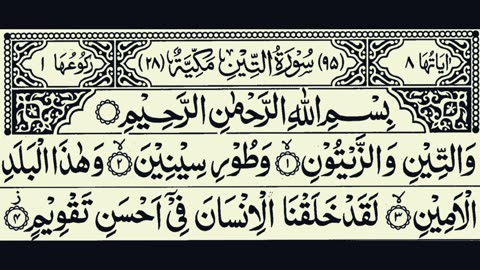 اٰیاتُهَا ٨ (٩٥) سُوْرَةُ التِّيْنِ مَكِّيَّةٌ (٢٨) رُكُوْعُهَا ١
بِسْمِ اللهِ الرَّحْمٰنِ الرَّحِيْمِ
وَالتِّيْنِ وَالزَّيْتُوْنِ ۙ﴿١﴾ وَطُوْرِ سِيْنِيْنَ ۙ﴿٢﴾ وَهٰذَا الْبَلَدِ
الْاَمِيْنِ ۙ﴿٣﴾ لَقَدْ خَلَقْنَا الْاِنْسَانَ فِيْٓ اَحْسَنِ تَقْوِيْمٍ ۡ﴿٤﴾